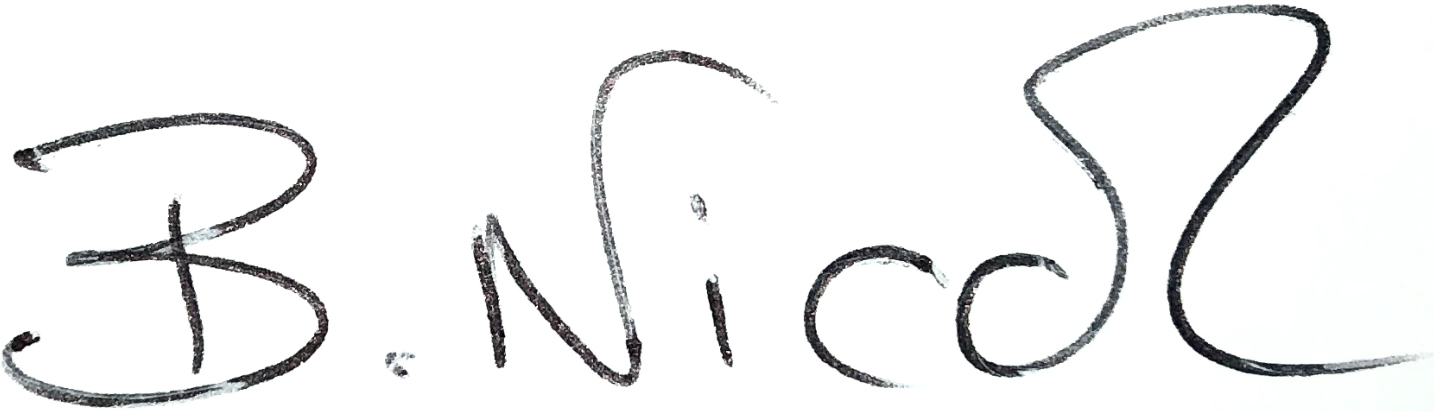 B. Nicol